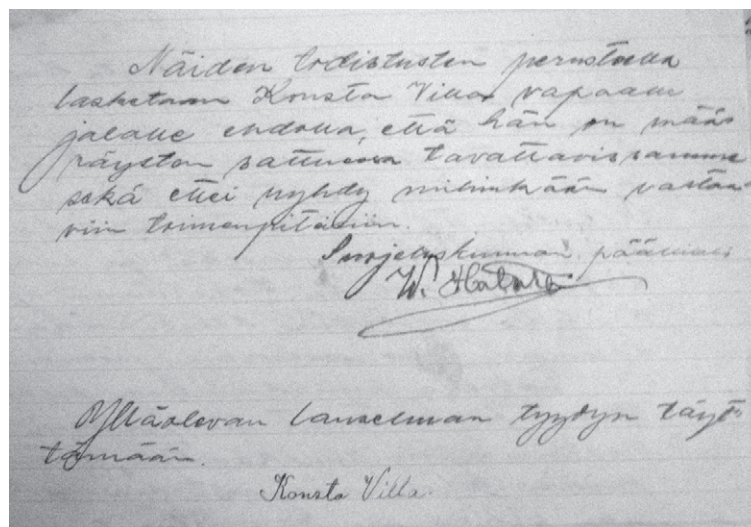 Näiden todistusten perusteella
lasketaan Konsta Villa vapaalle
jalalle ehdolla, että hän on mää-
räysten sattuessa tavattavissamme
sekä ettei ryhdy mihinkään vastaa-
viin toimenpiteisiin.
Suojeluskunnan päällikkö
W.
Ylläolevan lauselman tyydyn täyt-
tämään.
Konsta Villa.